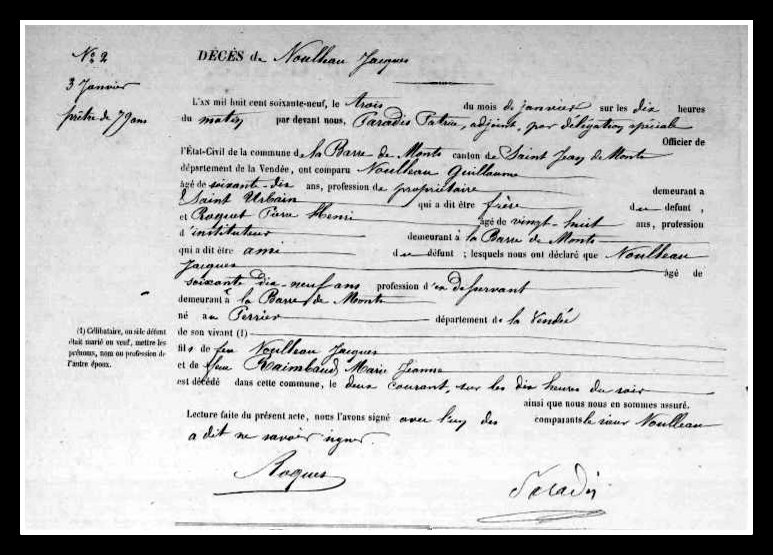 No 2
3 Janvier
prêtre de 79 ans
DÉCÈS de Noulleau Jacques
L'AN mil huit cent soixante-neuf, le trois du mois de janvier sur les dix heures
du matin par devant nous, Paradis Patrice, adjoint, par délégation spéciale
Officier de
l'État-Civil de la commune de la Barre de Monts canton de Saint Jean de Monts
département de la Vendée, ont comparu Noulleau Guillaume
âgé de soixante-dix ans, profession de propriétaire demeurant à
Saint Urbain qui a dit être frère du defunt,
et Roquet Pierre Henri âgé de vingt-huit ans, profession
d'instituteur demeurant à la Barre de Monts
qui a dit être ami du défunt ; lesquels nous ont déclaré que Noulleau
Jacques âgé de
soixante dix-neuf ans profession d'ex desservant
demeurant à la Barre de Monts
né au Perrier département de la Vendée
de son vivant (1)
fils de feu Noulleau Jacques
et de feu Raimbaud Marie Jeanne
est décédé dans cette commune, le deux courant, sur les dix heures du soir
ainsi que nous nous en sommes assuré.
Lecture faite du présent acte, nous l'avons signé avec l'un des comparants le sieur Noulleau
a dit ne savoir signer.
(1) Célibataire, ou si le défunt
était marié ou veuf, mettre les
prénoms, nom ou profession de
l'autre époux.
Roques Paradis